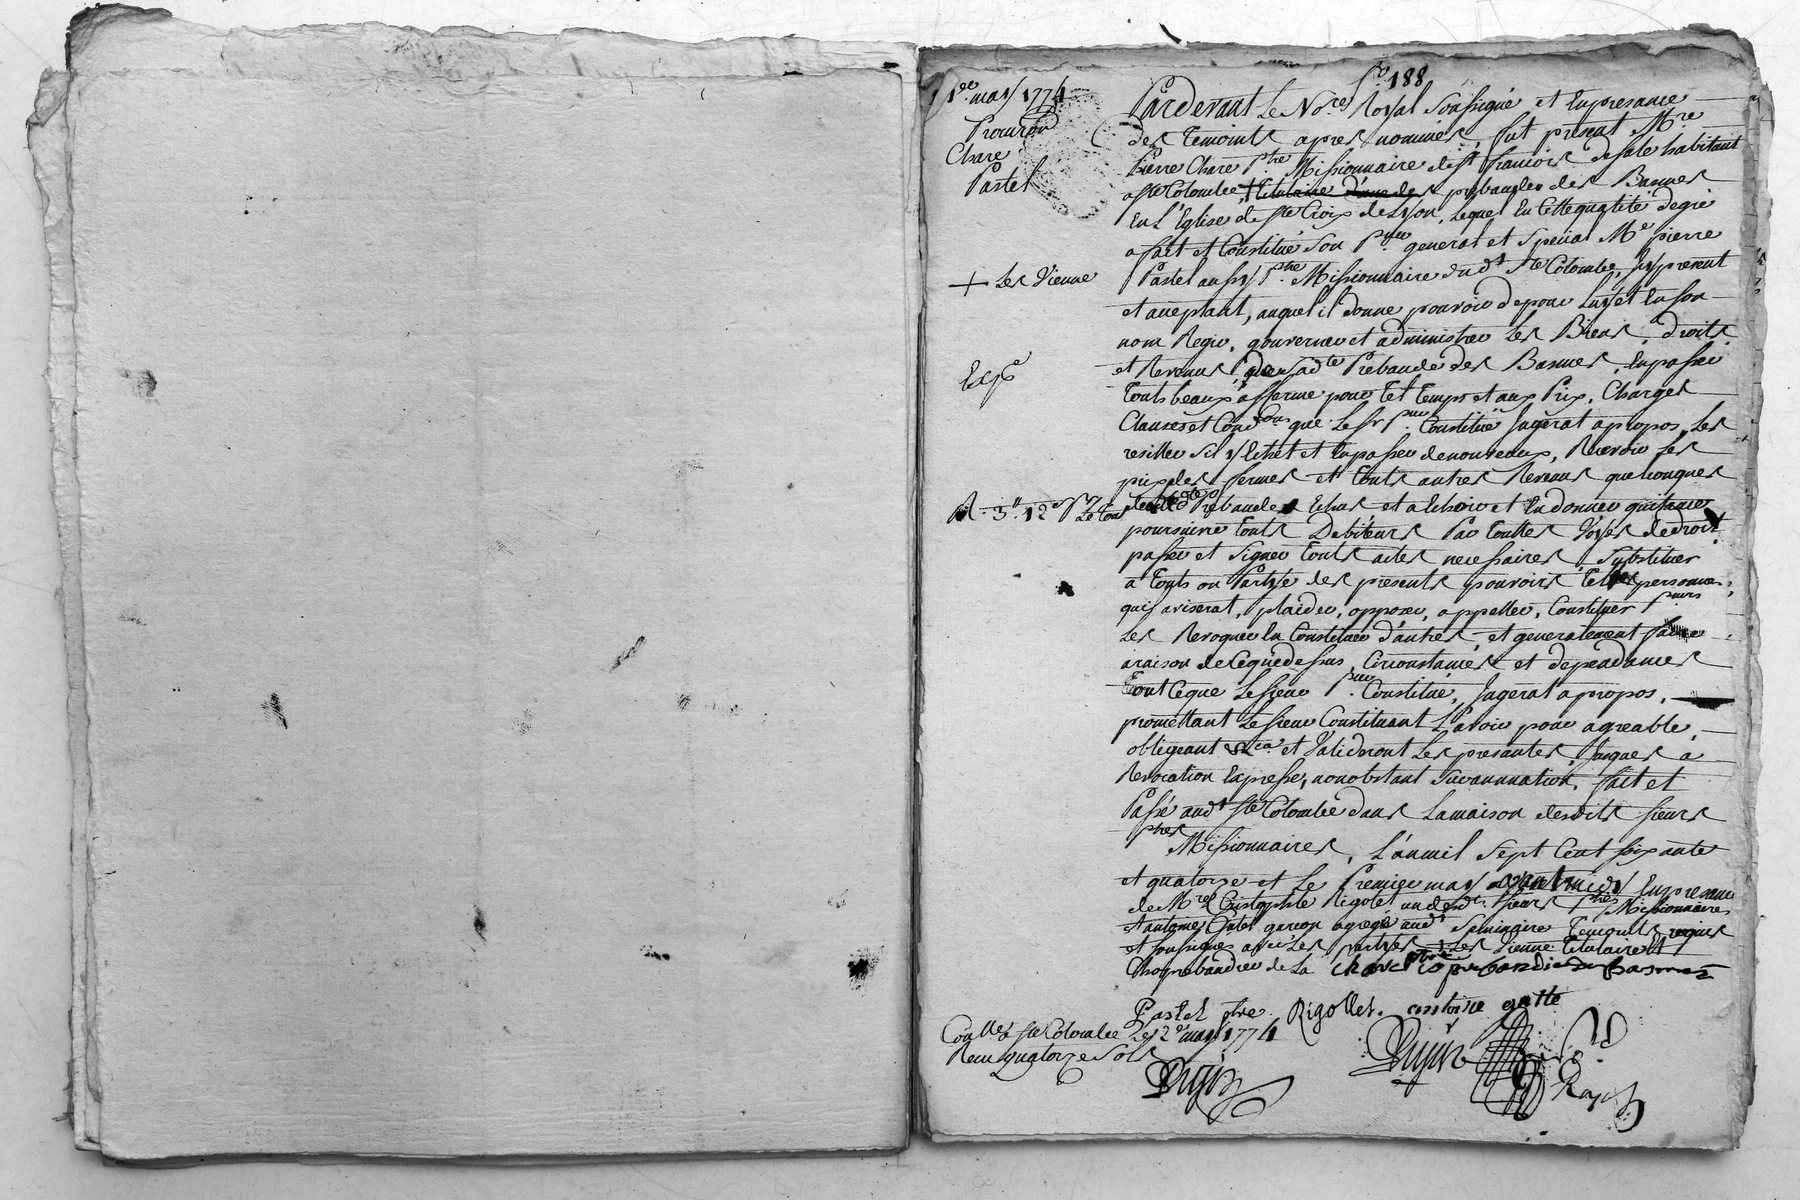 fo. 188
1er may 1774
Procuron
Chare
Pastel
Pardevant Le Nore Royal Soussigné et Enpresance
des temoints apres nommés, fut present Mre
Pierre Chare Ptre Missionnaire de st françois desale habitant
a ste Colombe + titulaire d'une des prebandes des Basmes
En L'Eglise de ste Croix de Lyon, Lequel En Cette qualité degré
a fait et Constitué Son Pnr general et Special Me pierre
+ Les Vienne
Pastel aussy Ptre Missionnaire dudt Ste Colombe, Icy present
et aceptant, auquel il donne pouvoir de pour Luy et En son
nom Regir, gouverner et administrer Les Biens, droits
et Revenus de Sadte Prebande des Basmes, En passer
Exp
touts beaux afferme pour tel temps et aux Prix, Charges
Clauses et Condons que Le sr Pnr Constitué Jugerat apropos, Les
resillier Sil y Echet et En passer de nouveaux, Recevoir Les
prix des fermes et touts autres Revenus quelconques
R. 3# 12s Le tout
Prebande Echus et a Echoir et En donner quitance
poursuivre touts Debiteurs Par touttes Voyes de droit
passer et Signer touts actes necessaires, Substituer
a touts ou Partye des presents pouvoirs telles personnes
quil aviserat, plaider, opposer, appeller, Constituer Pnurs
Les Revoquer En Constituer d'autres, et generalement faire
araison de Ceque dessus, Circonstances et dependances
tout Ceque Le sieur Pnr Constitué, Jugerat apropos,
promettant Le sieur Constituant L'avoir pour agreable,
obligeant &ca et Valideront Les presantes, Jusques a
Revocation Expresse, nonobstant Surannation, fait et
Passé audt ste Colombe dans Lamaison desdits sieurs
ptres Missionnaires, L'an mil Sept Cent soixante
et quatorze et Le Premier may avant midy En presance
de Mres Cristophle Rigolet un desdts sieurs Ptres Missionnaires
et antoine Gatet garcon agregé audt Seminaire temoints requis
et soussignes avec Les partyes + Les Vienne titulaire Et
Choprebandier de La chare ptre co prebandier des basmes
Pastel ptre Rigollet. antoine gatte
Conllé a ste Colombe Le 2e may 1774
Receu quatorze Sols